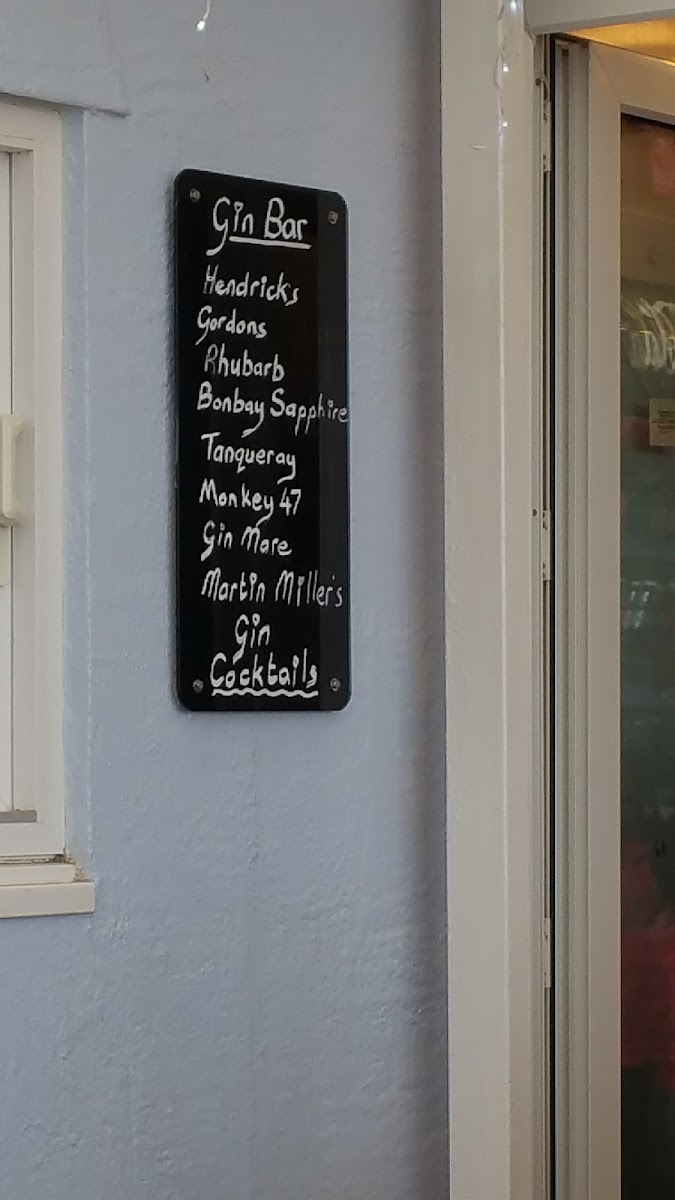 Gin Bar
Hendrick's
Gordons
Rhubarb
Bonbay Sapphire
Tanqueray
Monkey 47
Gin Mare
Martin Miller's
Gin
Cocktails